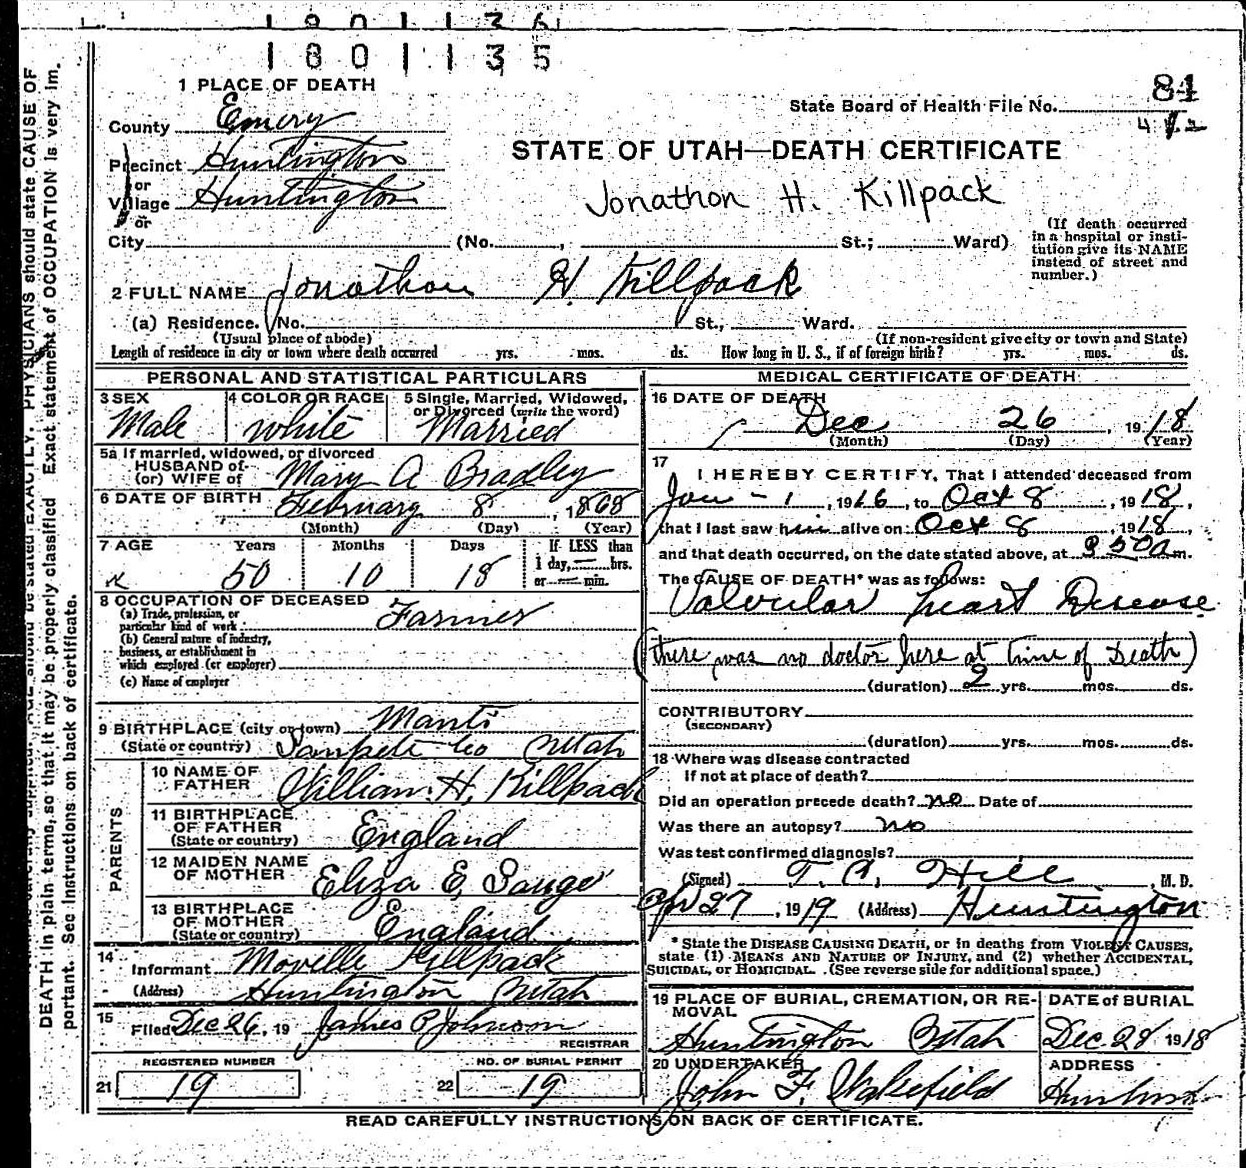 1801135
1 PLACE OF DEATH
State Board of Health File No. 81
County Emery
Precinct Huntington
or
Village Huntington
or
STATE OF UTAH—DEATH CERTIFICATE
Jonathon H. Killpack
City (No. , St.; Ward)
(If death occurred in a hospital or institution give its NAME instead of street and number.)
2 FULL NAME Jonathan H. Killpack
(a) Residence. No. St., Ward.
(Usual place of abode) (If non-resident give city or town and State)
Length of residence in city or town where death occurred yrs. mos. ds. How long in U. S., if of foreign birth? yrs. mos. ds.
PERSONAL AND STATISTICAL PARTICULARS
3 SEX Male
4 COLOR OR RACE white
5 Single, Married, Widowed, or Divorced (write the word) Married
5a If married, widowed, or divorced
HUSBAND of
(or) WIFE of Mary A Bradley
6 DATE OF BIRTH February 8, 1868
(Month) (Day) (Year)
7 AGE Years Months Days If LESS than
50 10 18 1 day, hrs.
or min.
8 OCCUPATION OF DECEASED
(a) Trade, profession, or
particular kind of work Farmer
(b) General nature of industry,
business, or establishment in
which employed (or employer)
(c) Name of employer
9 BIRTHPLACE (city or town) Manti
(State or country) Sanpete Co Utah
PARENTS
10 NAME OF
FATHER William H. Killpack
11 BIRTHPLACE
OF FATHER
(State or country) England
12 MAIDEN NAME
OF MOTHER Eliza E.
13 BIRTHPLACE
OF MOTHER
(State or country) England
14
Informant Movelle Killpack
(Address) Huntington Utah
15
Filed Dec 26, 19 James P Johnson
REGISTRAR
REGISTERED NUMBER NO. OF BURIAL PERMIT
21 19 22 19
MEDICAL CERTIFICATE OF DEATH
16 DATE OF DEATH
Dec 26, 1918
(Month) (Day) (Year)
17
I HEREBY CERTIFY, That I attended deceased from
Jan - 1, 1916, to Oct 8, 1918,
that I last saw him alive on Oct 8, 1918,
and that death occurred, on the date stated above, at m.
The CAUSE OF DEATH* was as follows:
Valvular heart Disease
(there was no doctor here at time of Death)
(duration) 2 yrs. mos. ds.
CONTRIBUTORY
(SECONDARY)
(duration) yrs. mos. ds.
18 Where was disease contracted
If not at place of death?
Did an operation precede death? no Date of
Was there an autopsy? no
Was test confirmed diagnosis?
(Signed) T. A. Hill, M. D.
27, 1919 (Address) Huntington
*State the DISEASE CAUSING DEATH, or in deaths from VIOLENT CAUSES,
state (1) MEANS AND NATURE OF INJURY, and (2) whether ACCIDENTAL,
SUICIDAL, or HOMICIDAL. (See reverse side for additional space.)
19 PLACE OF BURIAL, CREMATION, OR REMOVAL DATE of BURIAL
Huntington Utah Dec. 28 1918
20 UNDERTAKER ADDRESS
John F. Wakefield
READ CAREFULLY INSTRUCTIONS ON BACK OF CERTIFICATE.
PHYSICIANS should state CAUSE OF
DEATH in plain terms, so that it may be properly classified Exact statement of OCCUPATION is very im-
portant. See instructions on back of certificate.